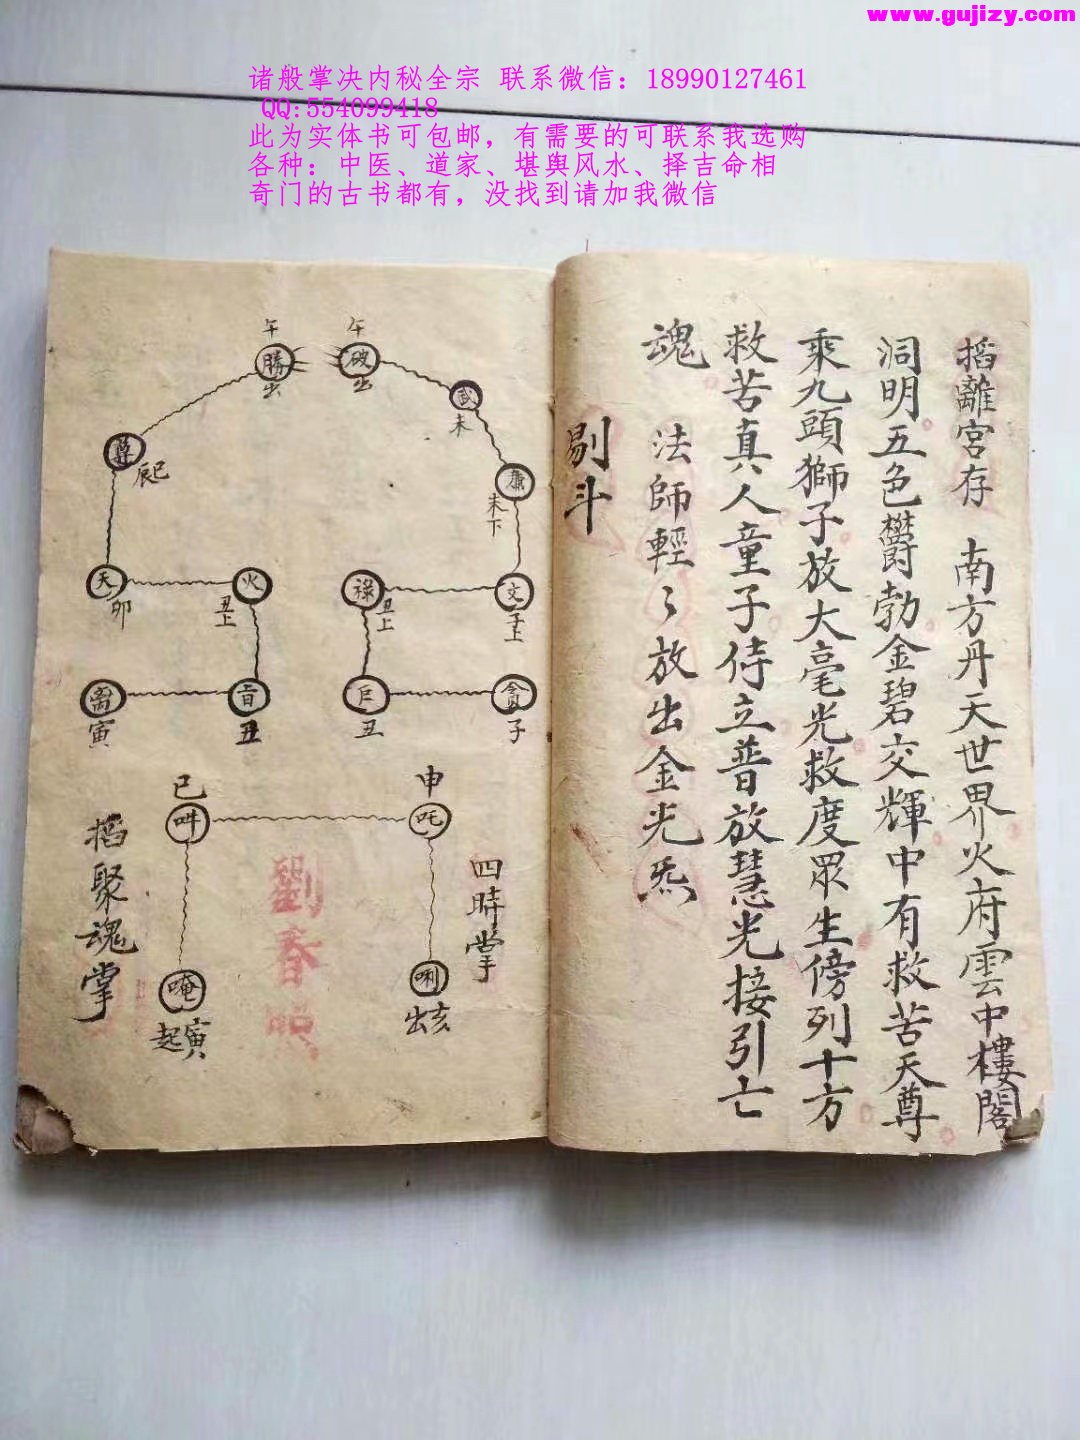 www.gujizy.com
诸般掌决内秘全宗 联系微信：18990127461
QQ:554099418
此为实体书可包邮，有需要的可联系我选购
各种：中医、道家、堪舆风水、择吉命相
奇门的古书都有，没找到请加我微信
搯離宮存 南方丹天世界火府雲中樓閣
洞明五色欝勃金碧交輝中有救苦天尊
乘九頭獅子放大毫光救度眾生傍列十方
救苦真人童子侍立普放慧光接引亡
魂 法師輕々放出金光炁
剔斗
午
破
出
武
未
廉
未下
文
子上
祿
丑上
巨
丑
貪
子
午
勝
出
尊
辰巳
天
卯
火
丑上
盲
丑
离
寅
四時掌
申
吒
唎
出亥
巳
吽
唵
起寅
搯聚魂掌
劉春